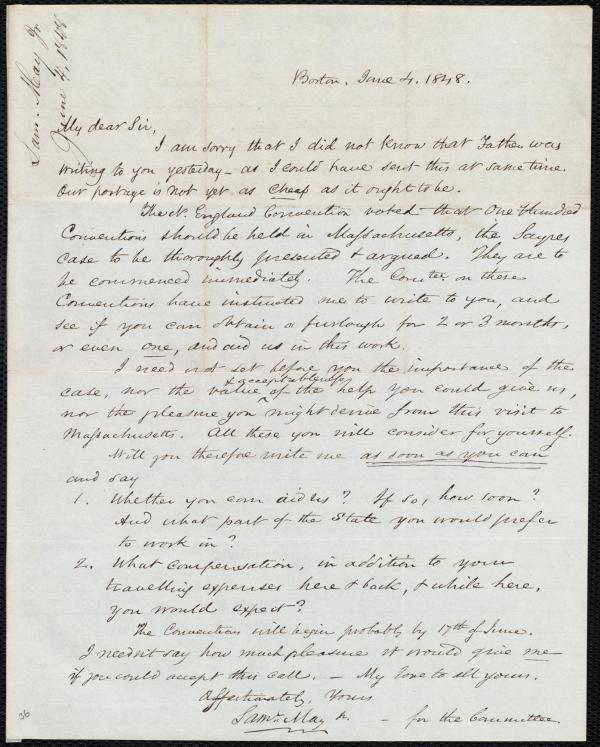 Sam. May Jr.
June 4, 1848
Boston, June 4. 1848.
My dear Sir,
I am sorry that I did not know that Father was
writing to you yesterday - as I could have sent this at same time.
Our postage is not yet as cheap as it ought to be.
The N. England Convention voted that One Hundred
Conventions should be held in Massachusetts, the Sayres
case to be thoroughly presented & argued. They are to
be commenced immediately. The Comtee. on these
Conventions have instructed me to write to you, and
see if you can obtain a furlough for 2 or 3 months,
or even one, and aid us in this work.
I need not set before you the importance of the
& acceptableness
case, nor the value ^ of the help you could give us,
nor the pleasure you might derive from this visit to
Massachusetts. All these you will consider for yourself.
Will you therefore write me as soon as you can
and say
1. Whether you can aid us? If so, how soon?
And what part of the State you would prefer
to work in?
2. What compensation, in addition to your
travelling expenses here & back, & while here,
you would expect?
The Conventions will begin probably by 17th of June.
I needn't say how much pleasure it would give me
if you could accept this call. - My love to all yours.
Affectionately, Yours
Saml. May Jr. - for the Committee
36